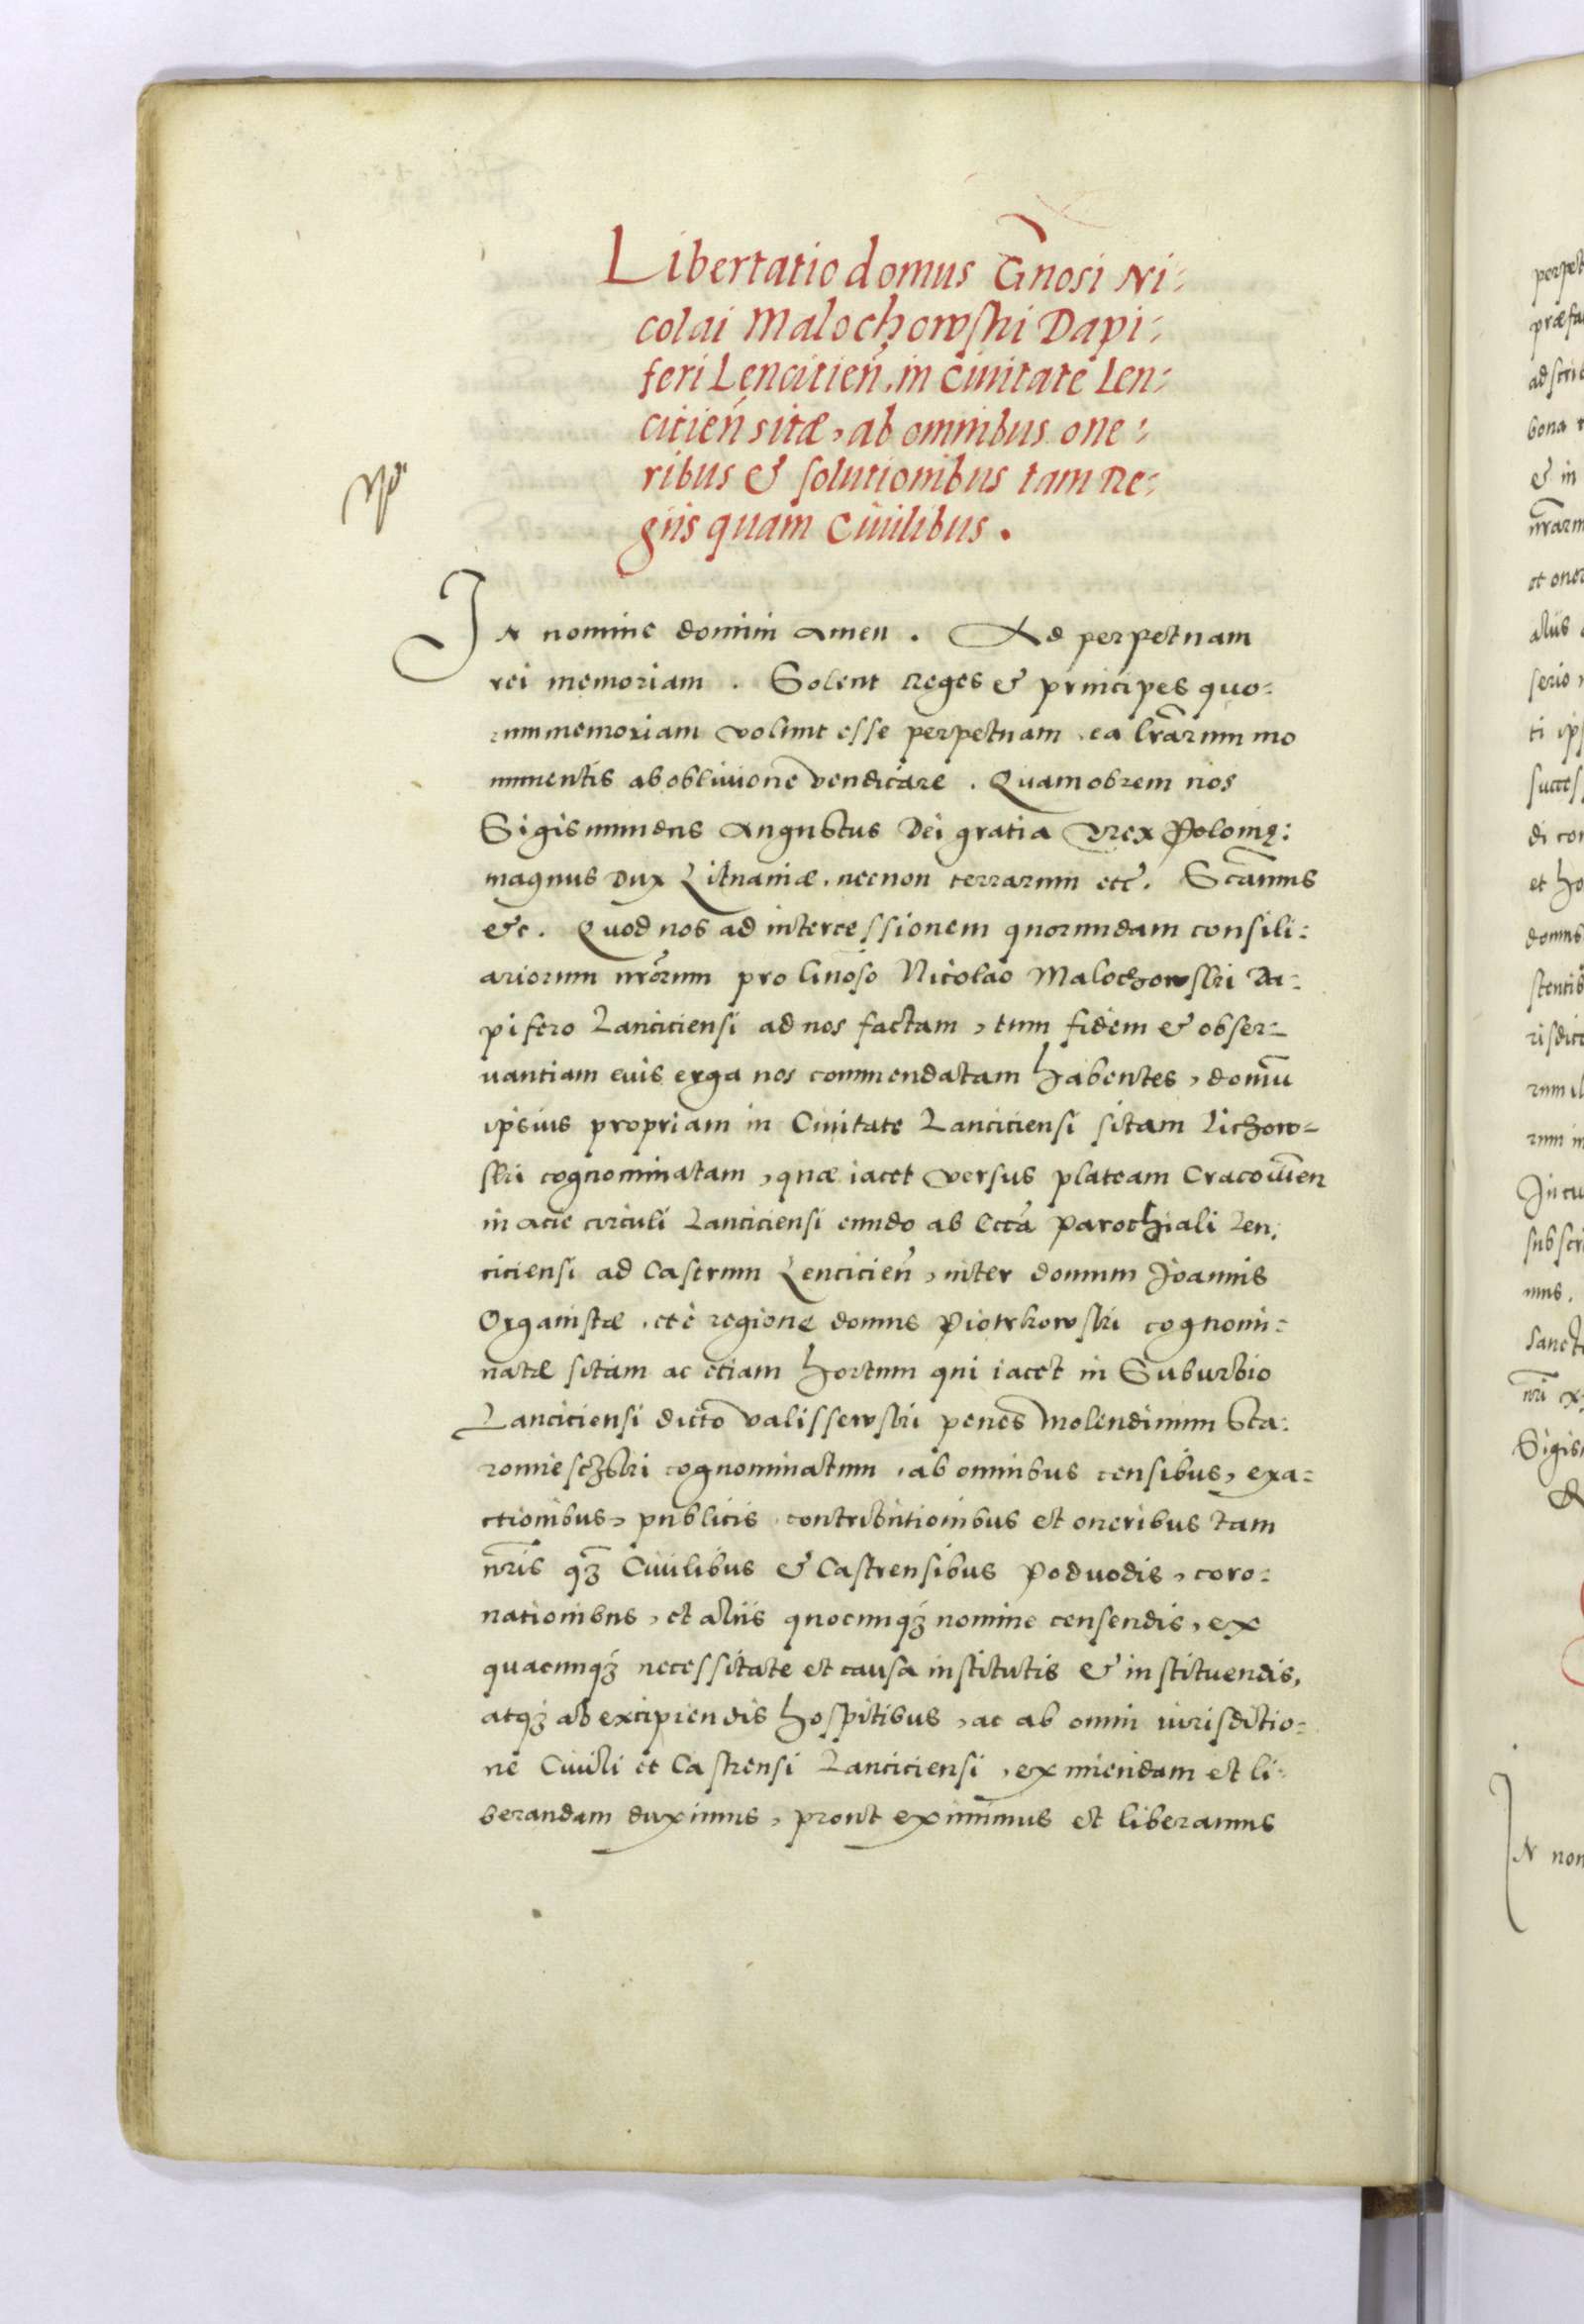 Libertatio domus Gnosi Ni:
colai Malochowski Dapi:
feri Lencitien̄. in Ciuitate Len:
citien̄ sitæ, ab omnibus one:
ribus & solutionibus tam Re:
giis quam Ciuilibus.
In nomine domini amen. Ad perpetuam
rei memoriam. Solent Reges & principes quo:
rum memoriam volunt esse perpetuam, ea lr̄arum mo
numentis ab obliuione vendicare. Quamobrem nos
Sigismundus Augustus Dei gratia Rex Polonię:
magnus Dux Lituaniæ. necnon terrarum etc̄. Sc̄amus
&c. Quod nos ad intercessionem quorundam consili:
ariorum nr̄orum pro Gnoso Nicolao Malochowski Da:
pifero Lanciciensi ad nos factam, tum fidem & obser:
uantiam eius erga nos commendatam habentes, domū
ipsius propriam in Ciuitate Lanciciensi sitam Lichow=
ski cognominatam, quæ iacet versus plateam Cracovien̄
in acie circuli Lanciciensi eundo ab Eccā parochiali Len:
ciciensi ad Castrum Lencicien̄, inter domum Joannis
Organistæ. et è regione domus Piotrkowski cognomi:
natæ sitam ac etiam hortum qui iacet in Suburbio
Lanciciensi dicto Valissewski penes Molendinum Sta:
romiesczski cognominatum, ab omnibus censibus, exa:
ctionibus, publicis contributionibus et oneribus tam
nr̄is qz̄ Ciuilibus & Castrensibus poduodis, coro:
nationibus, et aliis quocunqź nomine censendis, ex
quacunqź necessitate et causa institutis & instituendis,
atqź ab excipiendis hospitibus, ac ab omni iurisdictio=
ne Ciuili et Castrensi Lanciciensi, eximiendam et li:
berandam duximus, prout eximimus et liberamus